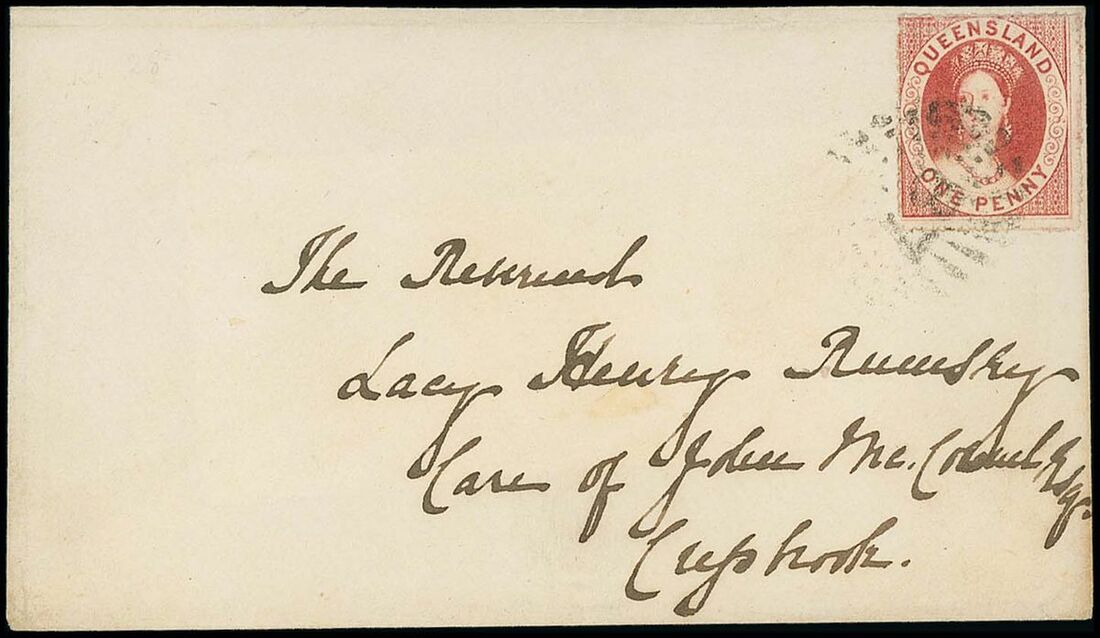 QUEENSLAND
ONE PENNY
The Reverend
Lacy Henry Rumsey
Care of John Mc. Connel Esq.
Cressbrook.